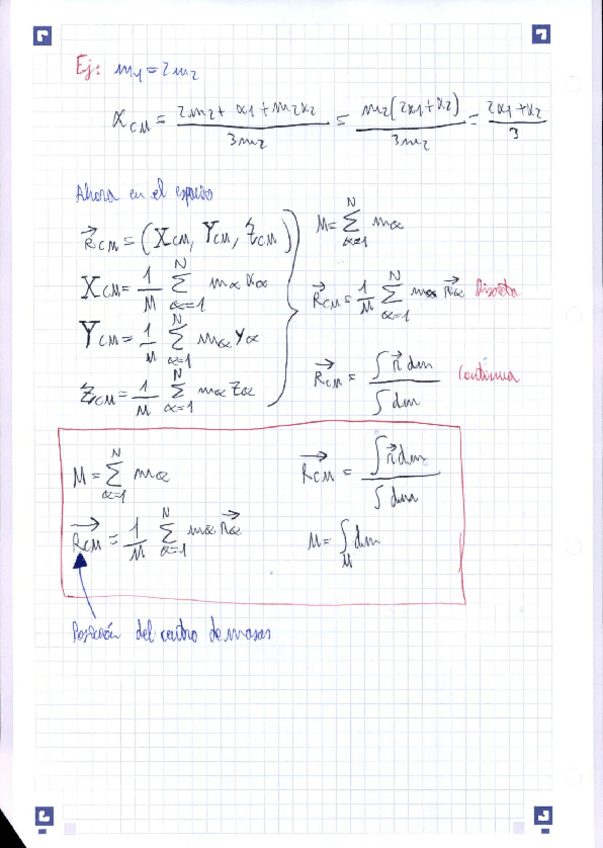 Ej: m₁ = 2m₂
x_CM = (2m₂ + x₁ + m₂x₂) / 3m₂ = m₂(2x₁ + x₂) / 3m₂ = (2x₁ + x₂) / 3
Ahora en el espacio
R⃗_CM = (X_CM, Y_CM, Z_CM)
X_CM = 1/M ∑_{α=1}^{N} m_α x_α
Y_CM = 1/M ∑_{α=1}^{N} m_α y_α
Z_CM = 1/M ∑_{α=1}^{N} m_α z_α
M = ∑_{α=1}^{N} m_α
R⃗_CM = 1/M ∑_{α=1}^{N} m_α R⃗_α Discreta
R⃗_CM = ∫ r⃗ dm / ∫ dm Continua
M = ∑_{α=1}^{N} m_α
R⃗_CM = 1/M ∑_{α=1}^{N} m_α R⃗_α
R⃗_CM = ∫ r⃗ dm / ∫ dm
M = ∫_M dm
Posición del centro de masas